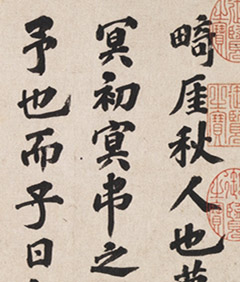 畸厓秋人也
冥初冥串之
予也而子日